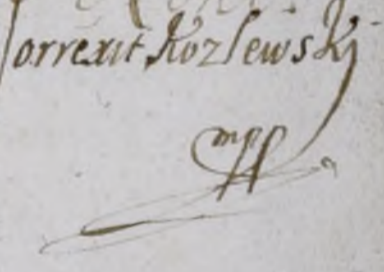 Correxit Kozlewski
mpp